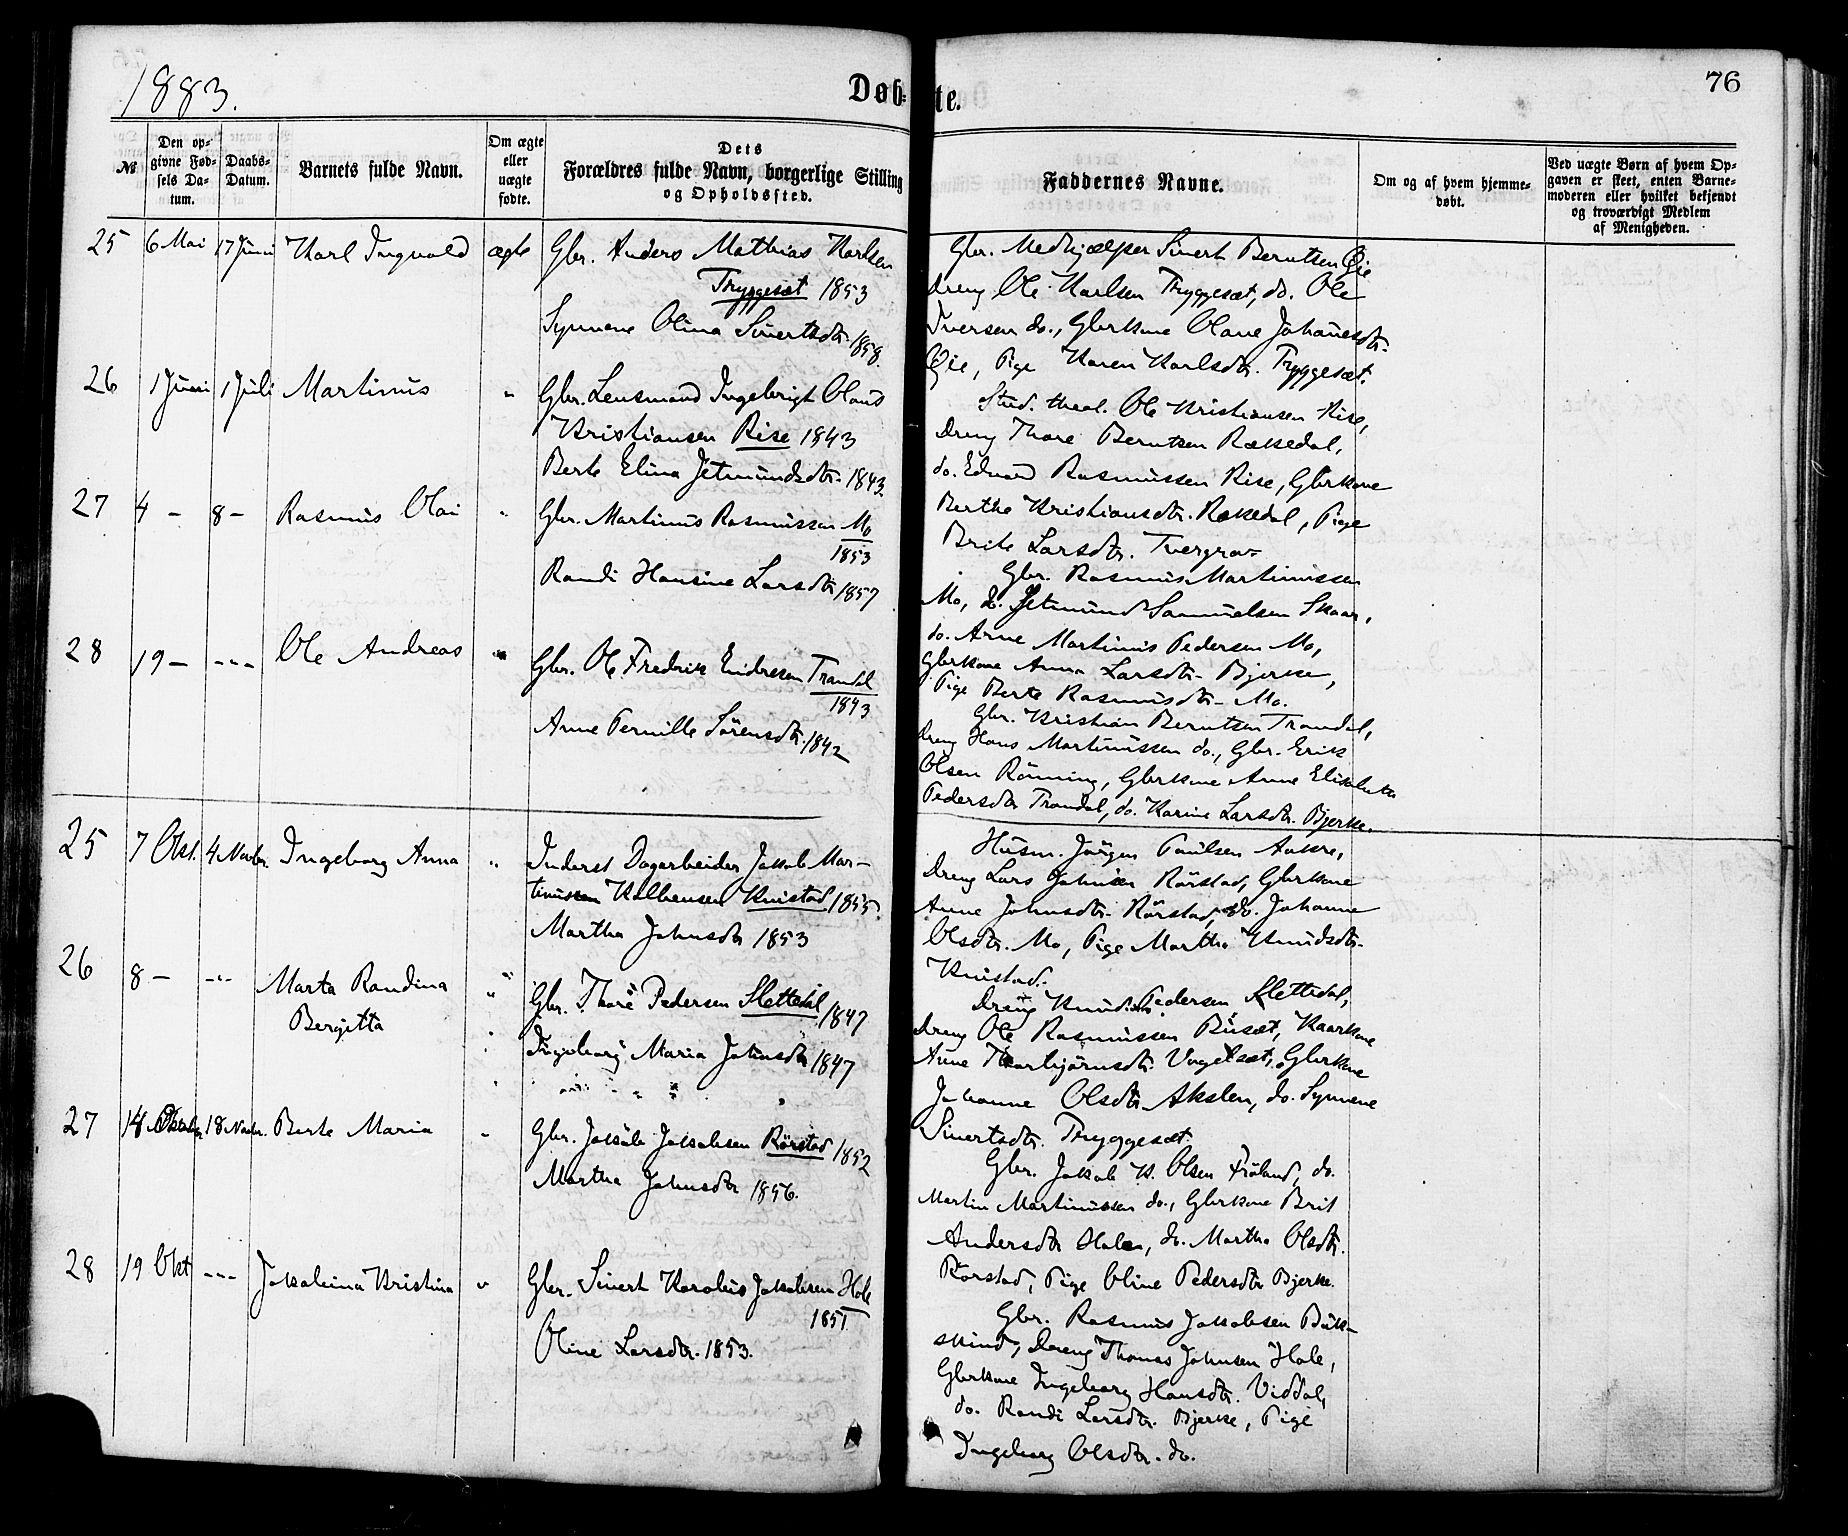 1883.
Døb=
te.
76
№
Den op-
givne Fød-
sels Da-
tum.
Daabs-
Datum.
Barnets fulde Navn.
Om ægte
eller
uægte
fødte.
Dets
Forældres fulde Navn, borgerlige Stilling
og Opholdssted.
Faddernes Navne.
Om og af hvem hjemme-
døbt.
Ved uægte Børn af hvem Op-
gaven er skeet, enten Barne-
moderen eller hvilket bekjendt
og troværdigt Medlem
af Menigheden.
25 6 Mai 17 Juni Karl Ingvald ægte Gbr. Anders Mathias Karlsen
Tryggesæt 1853
Synnene Olina Sivertsdtr 1858.
Gbr. Medhjælper Sivert Berntsen Øie
Dreng Ole Karlsen Tryggesæt, do. Ole
Iversen do., Gbrkone Olane Johanesdtr.
Øie, Pige Karen Karlsdtr. Tryggesæt.
26 1 Juni 1 Juli Martinus " Gbr. Lensmand Ingebrigt Olaus
Kristiansen Rise 1843
Berte Elina Jetmundsdtr. 1843.
Stud. theol. Ole Kristiansen Rise,
Dreng Thore Berntsen Rækedal,
do. Edvard Rasmussen Rise, Gbrkone
Berthe Kristiansdtr. Rækedal, Pige
Brite Larsdtr. Tvergrov
27 4 - 8 - Rasmus Olai " Gbr. Martinus Rasmussen Mo
1853
Randi Hansine Larsdtr 1857
Gbr. Rasmus Martinussen
Mo, do. Jetmund Samuelsen Skaar,
do. Arne Martinus Pedersen Mo,
Gbrkone Anna Larsdtr. Bjerke,
Pige Berte Rasmusdtr. Mo.
28 19 - --- Ole Andreas " Gbr. Ole Fredrik Endresen Trandal
1843
Anne Pernille Sörensdtr. 1842
Gbr. Kristian Berntsen Trandal,
Dreng Hans Martinussen do., Gbr. Erik
Olsen Rönning, Gbrkone Anne Elisabeth
Pedersdtr Trandal, do. Karine Larsdtr. Bjerke.
25 7 Okt. 4 Novbr. Ingeborg Anna " Inderst Dagarbeider Jakob Mar-
tinussen Kolbensen Knistad 1855.
Martha Johnsdtr 1853
Husm. Jörgen Paulsen Aakre,
Dreng Lars Johnsen Rörstad, Gbrkone
Anne Johnsdtr. Rörstad, do. Johanne
Olsdtr. Mo, Pige Martha Knudsdtr.
Knistad.
26 8 - --- Marta Randina " Gbr. Thore Pedersen Slettedal 1847
Bergitta
Ingeborg Maria Johnsdtr 1847
Dreng Knud Pedersen Slettedal,
Dreng Ole Rasmussen Busæt, Kaarkone
Anne Thorbjörnsdtr. Vogelsæt, Gbrkone
Johanne Olsdtr. Akslen, do. Synnene
Sivertsdtr. Tryggesæt.
27 14 Oktober. 18 Novbr. Berte Maria " Gbr. Jakob Jakobsen Rörstad 1852
Martha Johnsdtr 1856.
Gbr. Jakob K. Olsen Fröland, do.
Martin Martinussen do., Gbrkone Brit
Andersdtr Holen, do. Martha Olsdtr.
Rörstad, Pige Oline Pedersdtr Bjerke.
28 19 Okt --- Jakobina Kristina " Gbr. Sivert Karolus Jakobsen Hole
1851
Oline Larsdtr. 1853.
Gbr. Rasmus Jakobsen Buk-
skind, Dreng Thomas Johnsen Hole,
Gbrkone Ingeborg Hansdtr. Viddal,
do. Randi Larsdtr. Bjerke, Pige
Ingeborg Olsdtr. do.